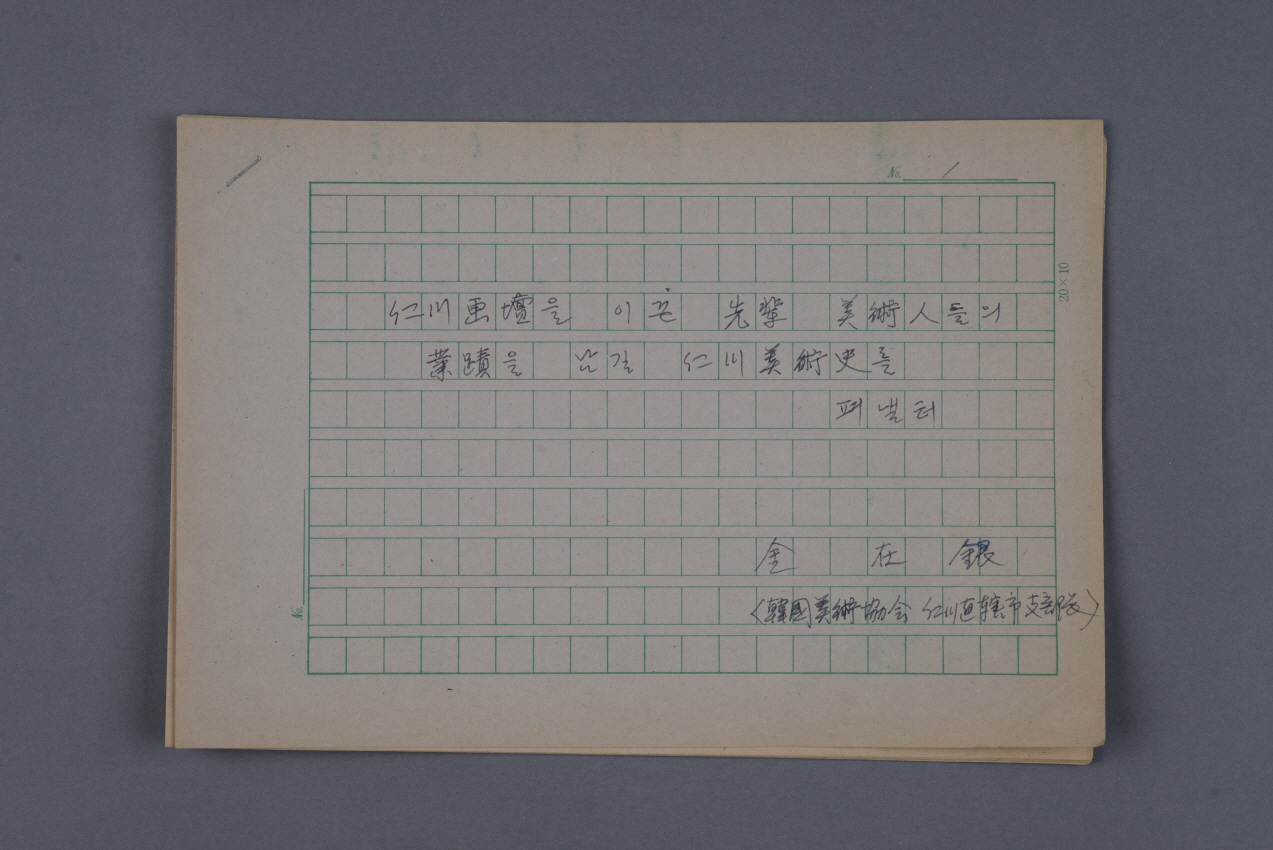 No. 1
仁川画壇을 이끈 先輩 美術人들의
業蹟을 남길 仁川美術史를
펴낼터
金 在 銀
〈韓國美術協会 仁川直轄市支部長〉
20×10
No.